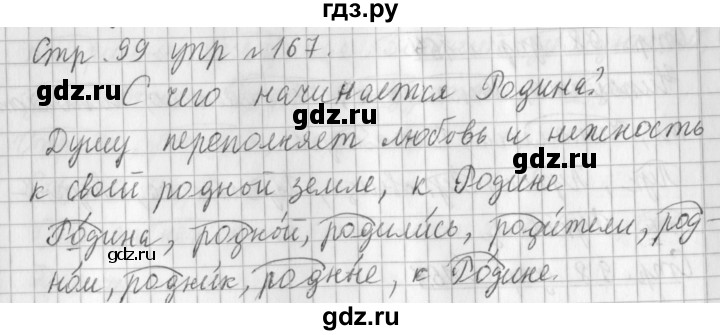 гдз.ру
Стр. 99 упр №167.
gdz.ru С чего начинается Родина? gdz.ru
Душу переполняет любовь и нежность
gdz.ru
к своей родной земле, к Родине
Родина, родной, родились, родители, род-
gdz.ru
ном, родник, родные, к Родине.
gdz.ru gdz.ru